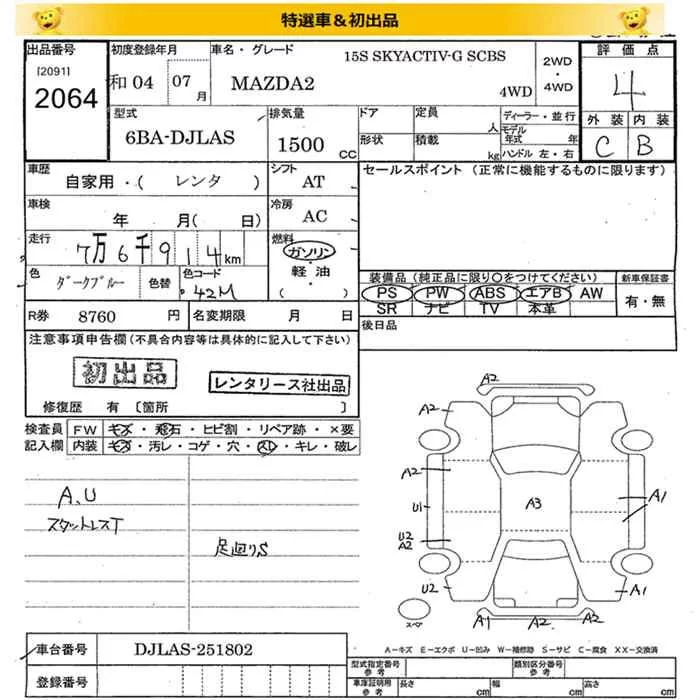 特選車＆初出品
出品番号
[2091]
2064
初度登録年月
和 04 07 月
車名・グレード
15S SKYACTIV-G SCBS
MAZDA2
4WD
2WD
・
4WD
評価点
4
外装 内装
C B
型式
6BA-DJLAS
排気量
1500 CC
ドア
定員
人
形状
積載
kg
ディーラー・並行
モデル年式 年
ハンドル 左・右
車歴
自家用・( レンタ )
シフト
AT
セールスポイント（正常に機能するものに限ります）
車検
年 月( 日)
冷房
AC
走行
7万6千914km
燃料
ガソリン
・
軽油
( )
色
ダークブルー
色替
色コード
42M
装備品（純正品に限り○をつけてください）
PS PW ABS エアB AW
SR ナビ TV 本革
新車保証書
有・無
R券 8760 円
名変期限 月 日
後日品
注意事項申告欄(不具合内容等は具体的に記入して下さい)
初出品
レンタリース社出品
修復歴 有 [箇所 ]
検査員
記入欄
FW キズ・飛石・ヒビ割・リペア跡・×要
内装 キズ・汚レ・コゲ・穴・スレ・キレ・破レ
A、U
スタットレスT
足廻りS
A2
A2
A2
U1
A3
A1
U2
A2
U2
A1
スペア
A1 A2 A2
車台番号
DJLAS-251802
登録番号
A－キズ E－エクボ U－凹み W－補修跡 S－サビ C－腐食 XX－交換済
型式指定番号
参考
類別区分番号
参考
車庫証明用
参考
長さ cm
幅 cm
高さ cm